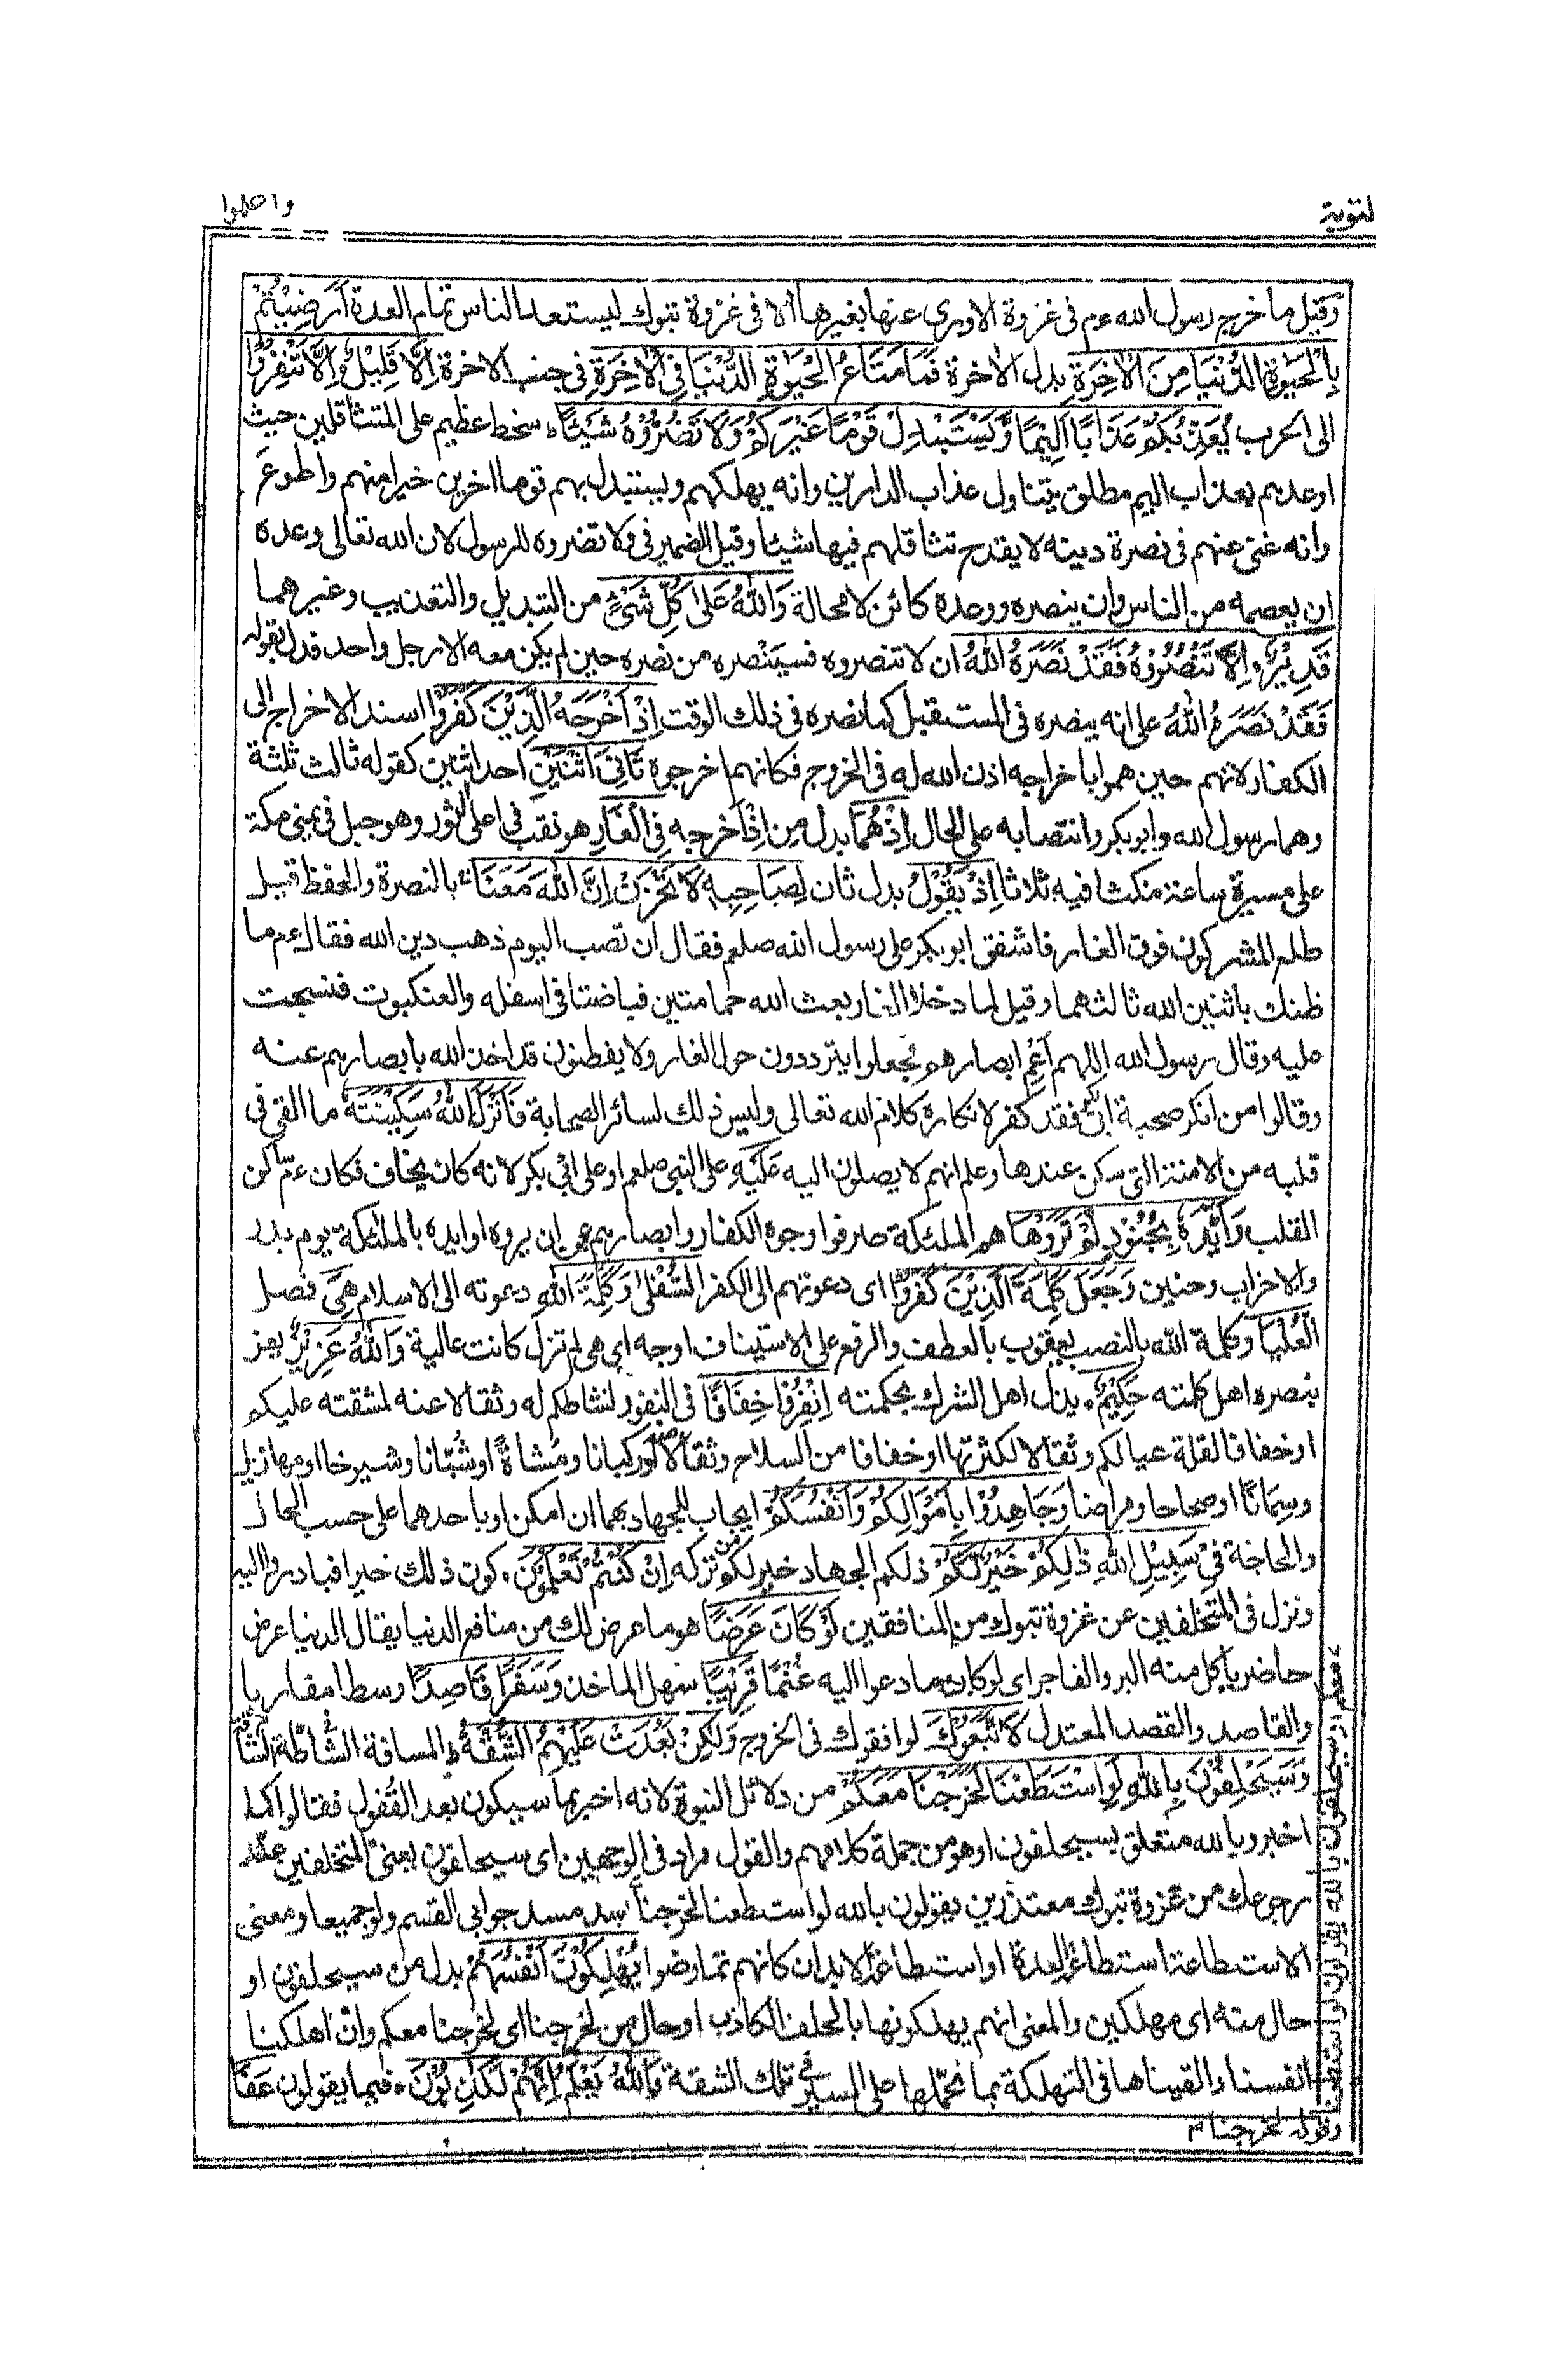 لتوبة
واعلموا
وقيل ما خرج رسول الله عم فى غزوة الاورى عنها بغيرها الا فى غزوة تبوك ليستعد الناس تمام العدة اَرَضِيْتُمْ
بِالْحَيٰوةِ الدُّنْيَا مِنَ الْاٰخِرَةِ بدل الاخرة فَمَا مَتَاعُ الْحَيٰوةِ الدُّنْيَا فِى الْاٰخِرَةِ فى جنب الاخرة اِلَّا قَلِيْلٌ اِلَّا تَنْفِرُوْا
الى الحرب يُعَذِّبْكُمْ عَذَابًا اَلِيْمًا وَّيَسْتَبْدِلْ قَوْمًا غَيْرَكُمْ وَلَا تَضُرُّوْهُ شَيْئًا ط سخط عظيم على المتثاقلين حيث
اوعدهم بعذاب اليم مطلق يتناول عذاب الدارين وانه يهلكهم ويستبدل بهم قوما اخرين خيرا منهم واطوع
وانه غنى عنهم فى نصرة دينه لا يقدح تثاقلهم فيها شيئا وقيل الضمير فى ولا تضروه للرسول لان الله تعالى وعده
ان يعصمه من الناس وان ينصره ووعده كائن لا محالة وَاللّٰهُ عَلٰى كُلِّ شَىْءٍ من التبديل والتعذيب وغيرهما
قَدِيْرٌ اِلَّا تَنْصُرُوْهُ فَقَدْ نَصَرَهُ اللّٰهُ ان لا تنصروه فسينصره من نصره حين لم يكن معه الا رجل واحد فدل بقوله
فَقَدْ نَصَرَهُ اللّٰهُ على انه ينصره فى المستقبل كما نصره فى ذلك الوقت اِذْ اَخْرَجَهُ الَّذِيْنَ كَفَرُوْا اسند الاخراج الى
الكفار لانهم حين هموا باخراجه اذن الله له فى الخروج فكانهم اخرجوه ثَانِىَ اثْنَيْنِ احد اثنين كقوله ثالث ثلثة
وهما رسول الله وابو بكر وانتصابه على الحال اِذْ هُمَا بدل من اذ اخرجه فِى الْغَارِ هو نقب فى اعلى الثور وهو جبل فى يمنى مكة
على مسيرة ساعة مكثا فيه ثلاثا اِذْ يَقُوْلُ بدل ثان لِصَاحِبِهٖ لَا تَحْزَنْ اِنَّ اللّٰهَ مَعَنَا بالنصرة والحفظ قيل
طلع المشركون فوق الغار فاشفق ابو بكر على رسول الله صلعم فقال ان تصب اليوم ذهب دين الله فقال عم ما
ظنك باثنين الله ثالثهما وقيل لما دخلا الغار بعث الله حمامتين فباضتا فى اسفله والعنكبوت فنسجت
عليه وقال رسول الله اللهم اَعْمِ ابصارهم فجعلوا يترددون حول الغار ولا يفطنون قد اخذ الله بابصارهم عنه
وقالوا من انكر صحبة ابى بكر فقد كفر لانكاره كلام الله تعالى وليس ذلك لسائر الصحابة فَاَنْزَلَ اللّٰهُ سَكِيْنَتَهٗ ما القى فى
قلبه من الامنة التى سكن عندها وعلم انهم لا يصلون اليه عَلَيْهِ على النبى صلعم او على ابى بكر لانه كان يخاف فكان عم ساكن
القلب وَاَيَّدَهٗ بِجُنُوْدٍ لَّمْ تَرَوْهَا هم الملئكة صرفوا وجوه الكفار وابصارهم عن ان يروه او ايده بالملئكة يوم بدر
والاحزاب وحنين وَجَعَلَ كَلِمَةَ الَّذِيْنَ كَفَرُوا اى دعوتهم الى الكفر السُّفْلٰى وَكَلِمَةُ اللّٰهِ دعوته الى الاسلام هِىَ فصل
الْعُلْيَا وكلمة الله بالنصب يعقوب بالعطف والرفع على الاستيناف اوجه اى هى لم تزل كانت عالية وَاللّٰهُ عَزِيْزٌ يعز
بنصره اهل كلمته حَكِيْمٌ يذل اهل الشرك بحكمته اِنْفِرُوْا خِفَافًا فى النفور لنشاطكم له وثقالا عنه لمشقته عليكم
او خفافا لقلة عيالكم وثقالا لكثرتها او خفافا من السلاح وثقالا منه او ركبانا ومُشاةً او شُبّانا وشيوخا او مهازيل
وسِمَانًا او صحاحا ومراضا وَجَاهِدُوْا بِاَمْوَالِكُمْ وَاَنْفُسِكُمْ ايجاب للجهاد بهما ان امكن او باحدهما على حسب الحال
والحاجة فِىْ سَبِيْلِ اللّٰهِ ذٰلِكُمْ خَيْرٌ لَّكُمْ ذلكم الجهاد خير لكم من تركه اِنْ كُنْتُمْ تَعْلَمُوْنَ كون ذلك خيرا فبادروا اليه
ونزل فى المتخلفين عن غزوة تبوك من المنافقين لَوْ كَانَ عَرَضًا هو ما عرض لك من منافع الدنيا يقال الدنيا عرض
حاضر يأكل منه البر والفاجر اى لو كان ما دعوا اليه غُنْمًا قَرِيْبًا سهل الماخذ وَسَفَرًا قَاصِدًا وسطا مقاربا
والقاصد والقصد المعتدل لَاتَّبَعُوْكَ لوافقوك فى الخروج وَلٰكِنْ بَعُدَتْ عَلَيْهِمُ الشُّقَّةُ ط المسافة الشاطّة الشاقّة
وَسَيَحْلِفُوْنَ بِاللّٰهِ لَوِ اسْتَطَعْنَا لَخَرَجْنَا مَعَكُمْ من دلائل النبوة لانه اخبر بما سيكون بعد القُفُول فقالوا كما
اخبر وبالله متعلق بسيحلفون او هو من جملة كلامهم والقول مراد فى الوجهين اى سيحلفون يعنى المتخلفين عند
رجوعك من غزوة تبوك معتذرين يقولون بالله لو استطعنا لخرجنا سد مسد جوابى القسم ولو جميعا ومعنى
الاستطاعة استطاعة العدة او استطاعة الابدان كانهم تمارضوا يُهْلِكُوْنَ اَنْفُسَهُمْ بدل من سيحلفون او
حال منه اى مهلكين والمعنى انهم يهلكونها بالحلف الكاذب او حال من لخرجنا اى لخرجنا معكم وان اهلكنا
انفسنا والقيناها فى التهلكة بما نحمّلها على السير فى تلك الشقة وَاللّٰهُ يَعْلَمُ اِنَّهُمْ لَكٰذِبُوْنَ فيما يقولون عَفَا
وقوله لخرجنا